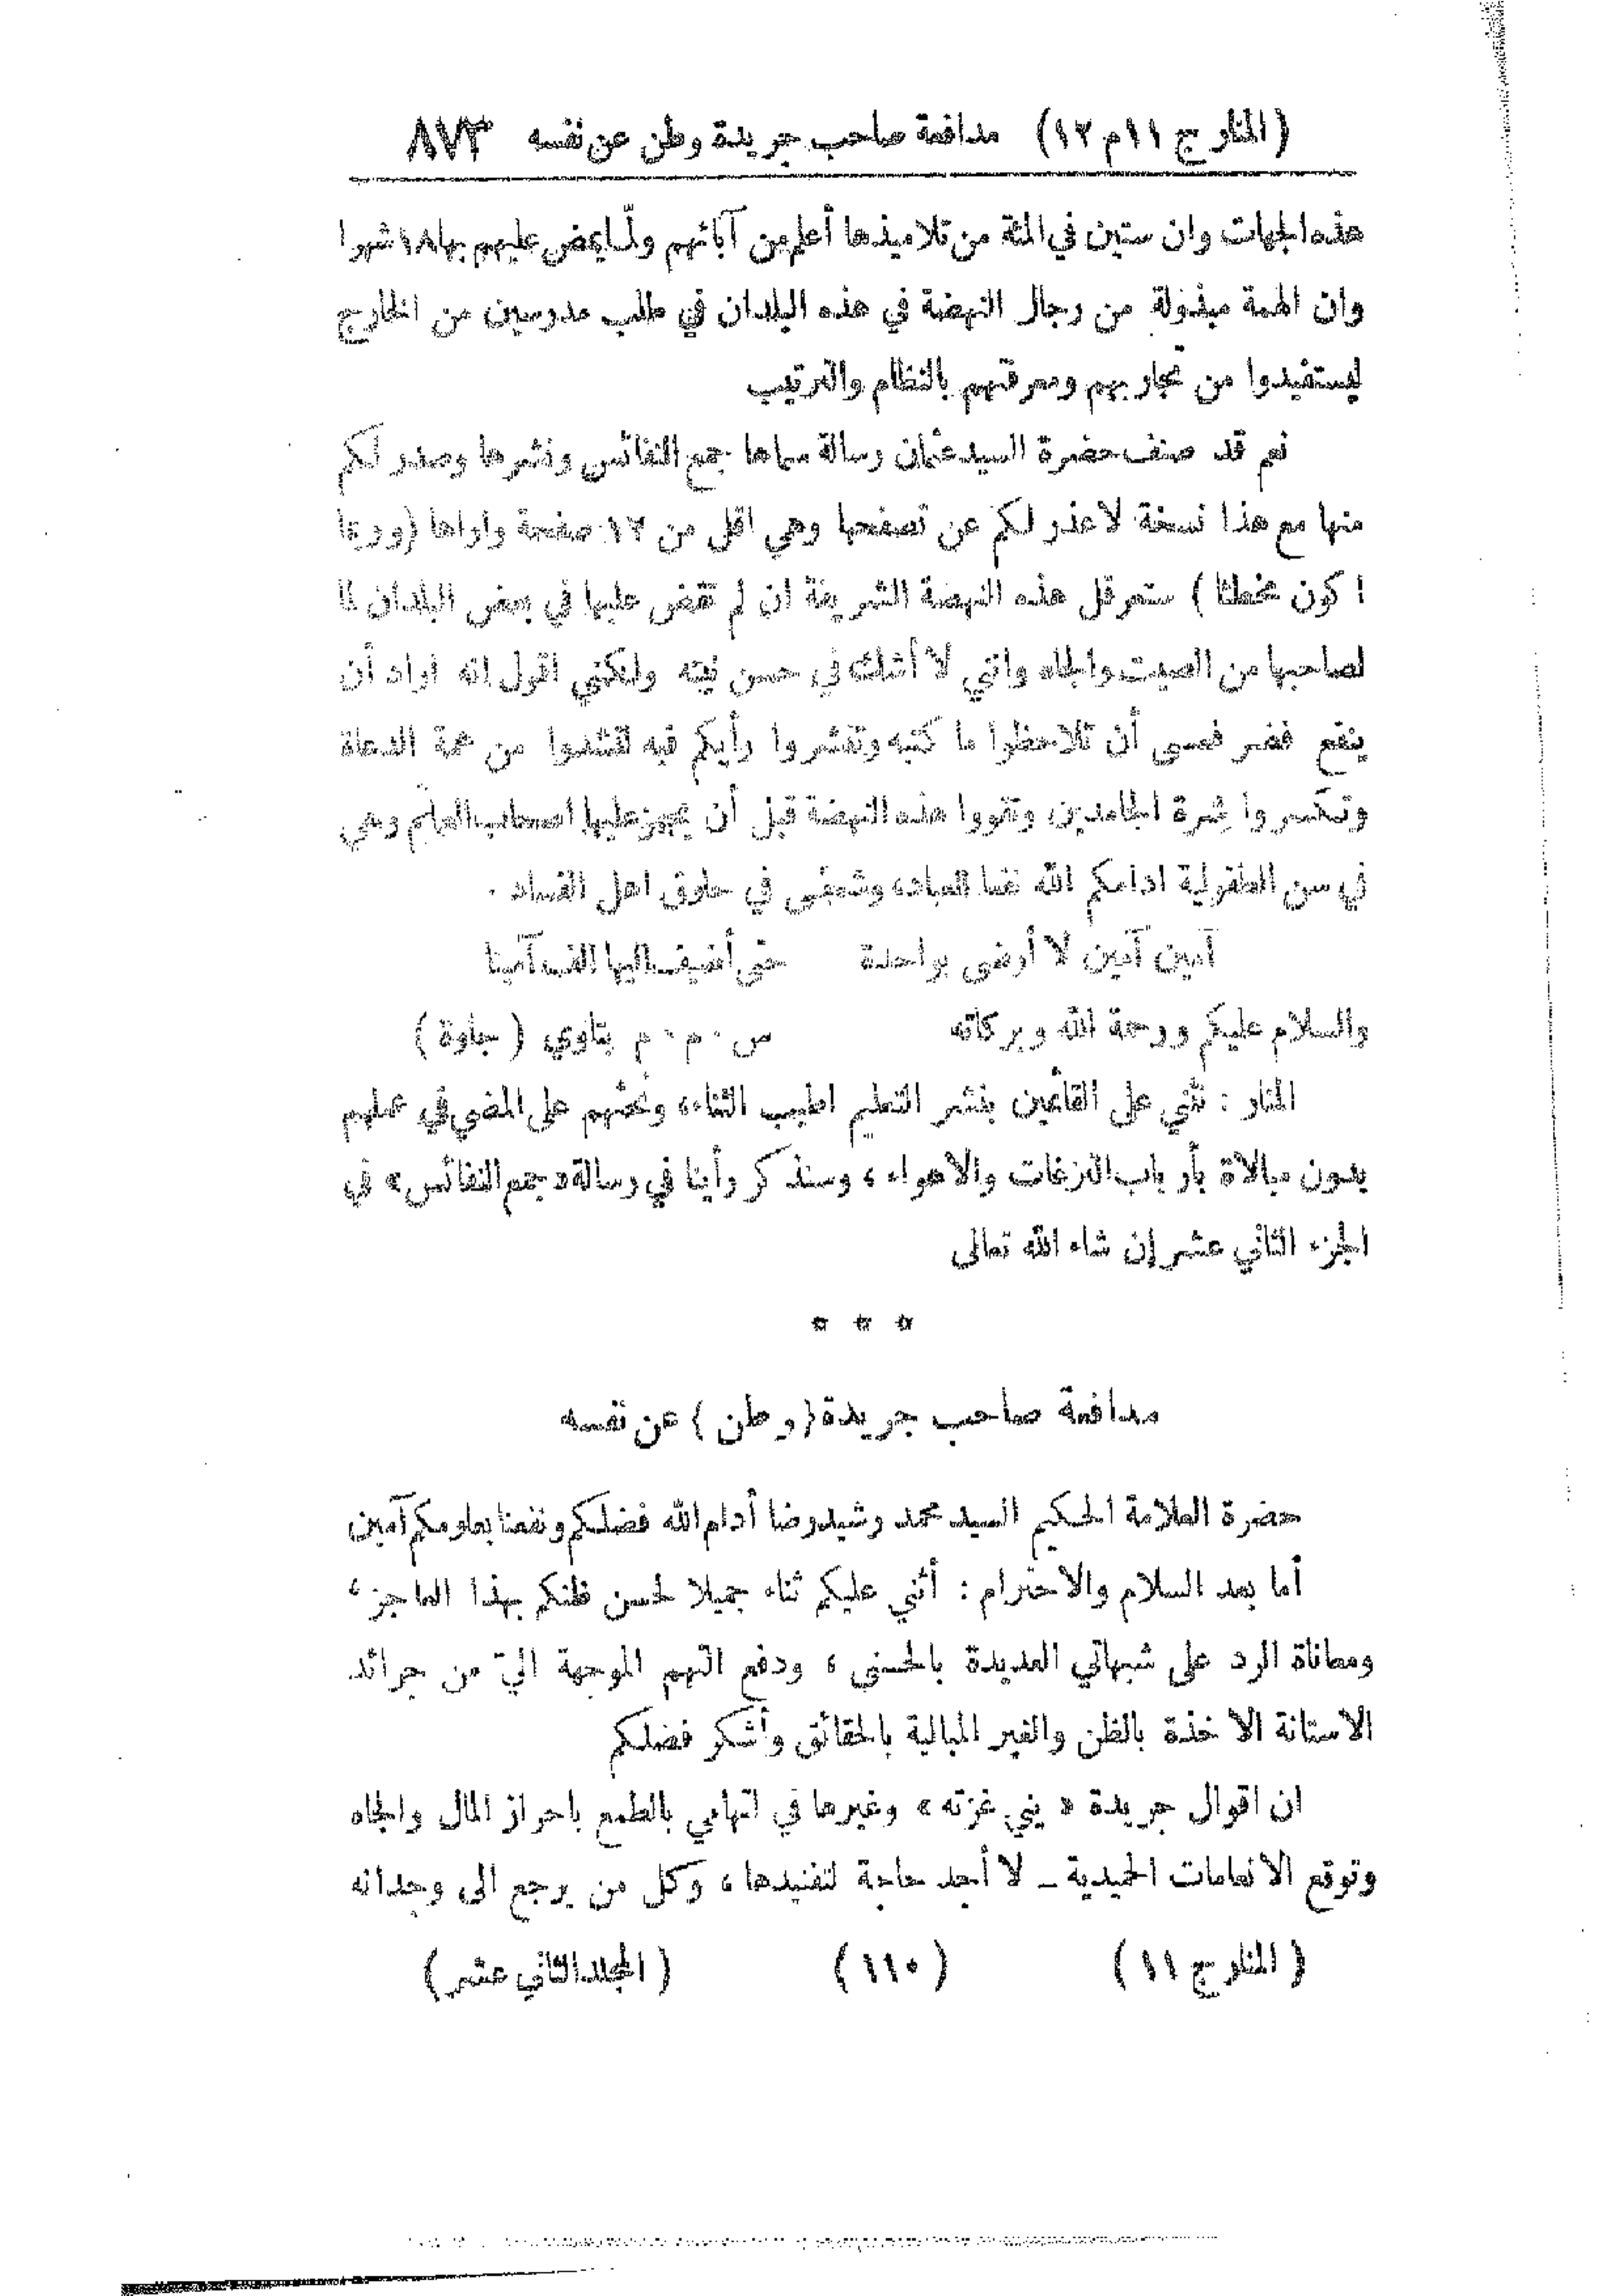 (المنار ج ١١ م ١٢) مدافعة صاحب جريدة وطن عن نفسه ٨٧٣
هذه الجهات وان ستين في المئة من تلاميذها أعلم من آبائهم ولمّا يمض عليهم بها ١٨ شهرا
وان الهمة مبذولة من رجال النهضة في هذه البلدان في طلب مدرسين من الخارج
ليستفيدوا من تجاربهم ومعرفتهم بالنظام والترتيب
نعم قد صنف حضرة السيد عثمان رسالة سماها جمع النفائس ونشرها وصدر لكم
منها مع هذا نسخة لا عذر لكم عن تصفحها وهي اقل من ١٢ صفحة واراها (وربما
اكون مخطئا) ستعرقل هذه النهضة الشريفة ان لم تقض عليها في بعض البلدان لما
لصاحبها من الصيت والجاه وانني لا أشك في حسن نيته ولكني اقول انه اراد أن
ينفع فضر فعسى أن تلاحظوا ما كتبه وتنشروا رأيكم فيه لتشدوا من همة الدعاة
وتكسروا شرة الجامدين وتقووا هذه النهضة قبل أن يجهز عليها اصحاب العمائم وهي
في سن الطفولية ادامكم الله نفعا للعباد، وشجى في حلوق اهل الفساد .
آمين آمين لا أرضى بواحدة حتى أضيف اليها الف آمينا
والسلام عليكم ورحمة الله وبركاته س . م . م بتاوي (جاوة)
المنار : نثني على القائمين بنشر التعليم اطيب الثناء، ونحثهم على المضي في عملهم
بدون مبالاة بأرباب النزغات والاهواء، وسنذكر رأينا في رسالة «جمع النفائس» في
الجزء الثاني عشر إن شاء الله تعالى
* * *
مدافعة صاحب جريدة (وطن) عن نفسه
حضرة العلامة الحكيم السيد محمد رشيد رضا أدام الله فضلكم ونفعنا بعلومكم آمين
أما بعد السلام والاحترام : أثني عليكم ثناء جميلا لحسن ظنكم بهذا العاجز،
ومعاناة الرد على شبهاتي العديدة بالحسنى ، ودفع التهم الموجهة اليّ من جرائد
الاستانة الاخذة بالظن والغير المبالية بالحقائق وأشكر فضلكم
ان اقوال جريدة « يني غزته » وغيرها في اتهامي بالطمع باحراز المال والجاه
وتوقع الانعامات الحميدية ـ لا أجد حاجة لتفنيدها ، وكل من يرجع الى وجدانه
(المنار ج ١١) (١١٠) (المجلد الثاني عشر)